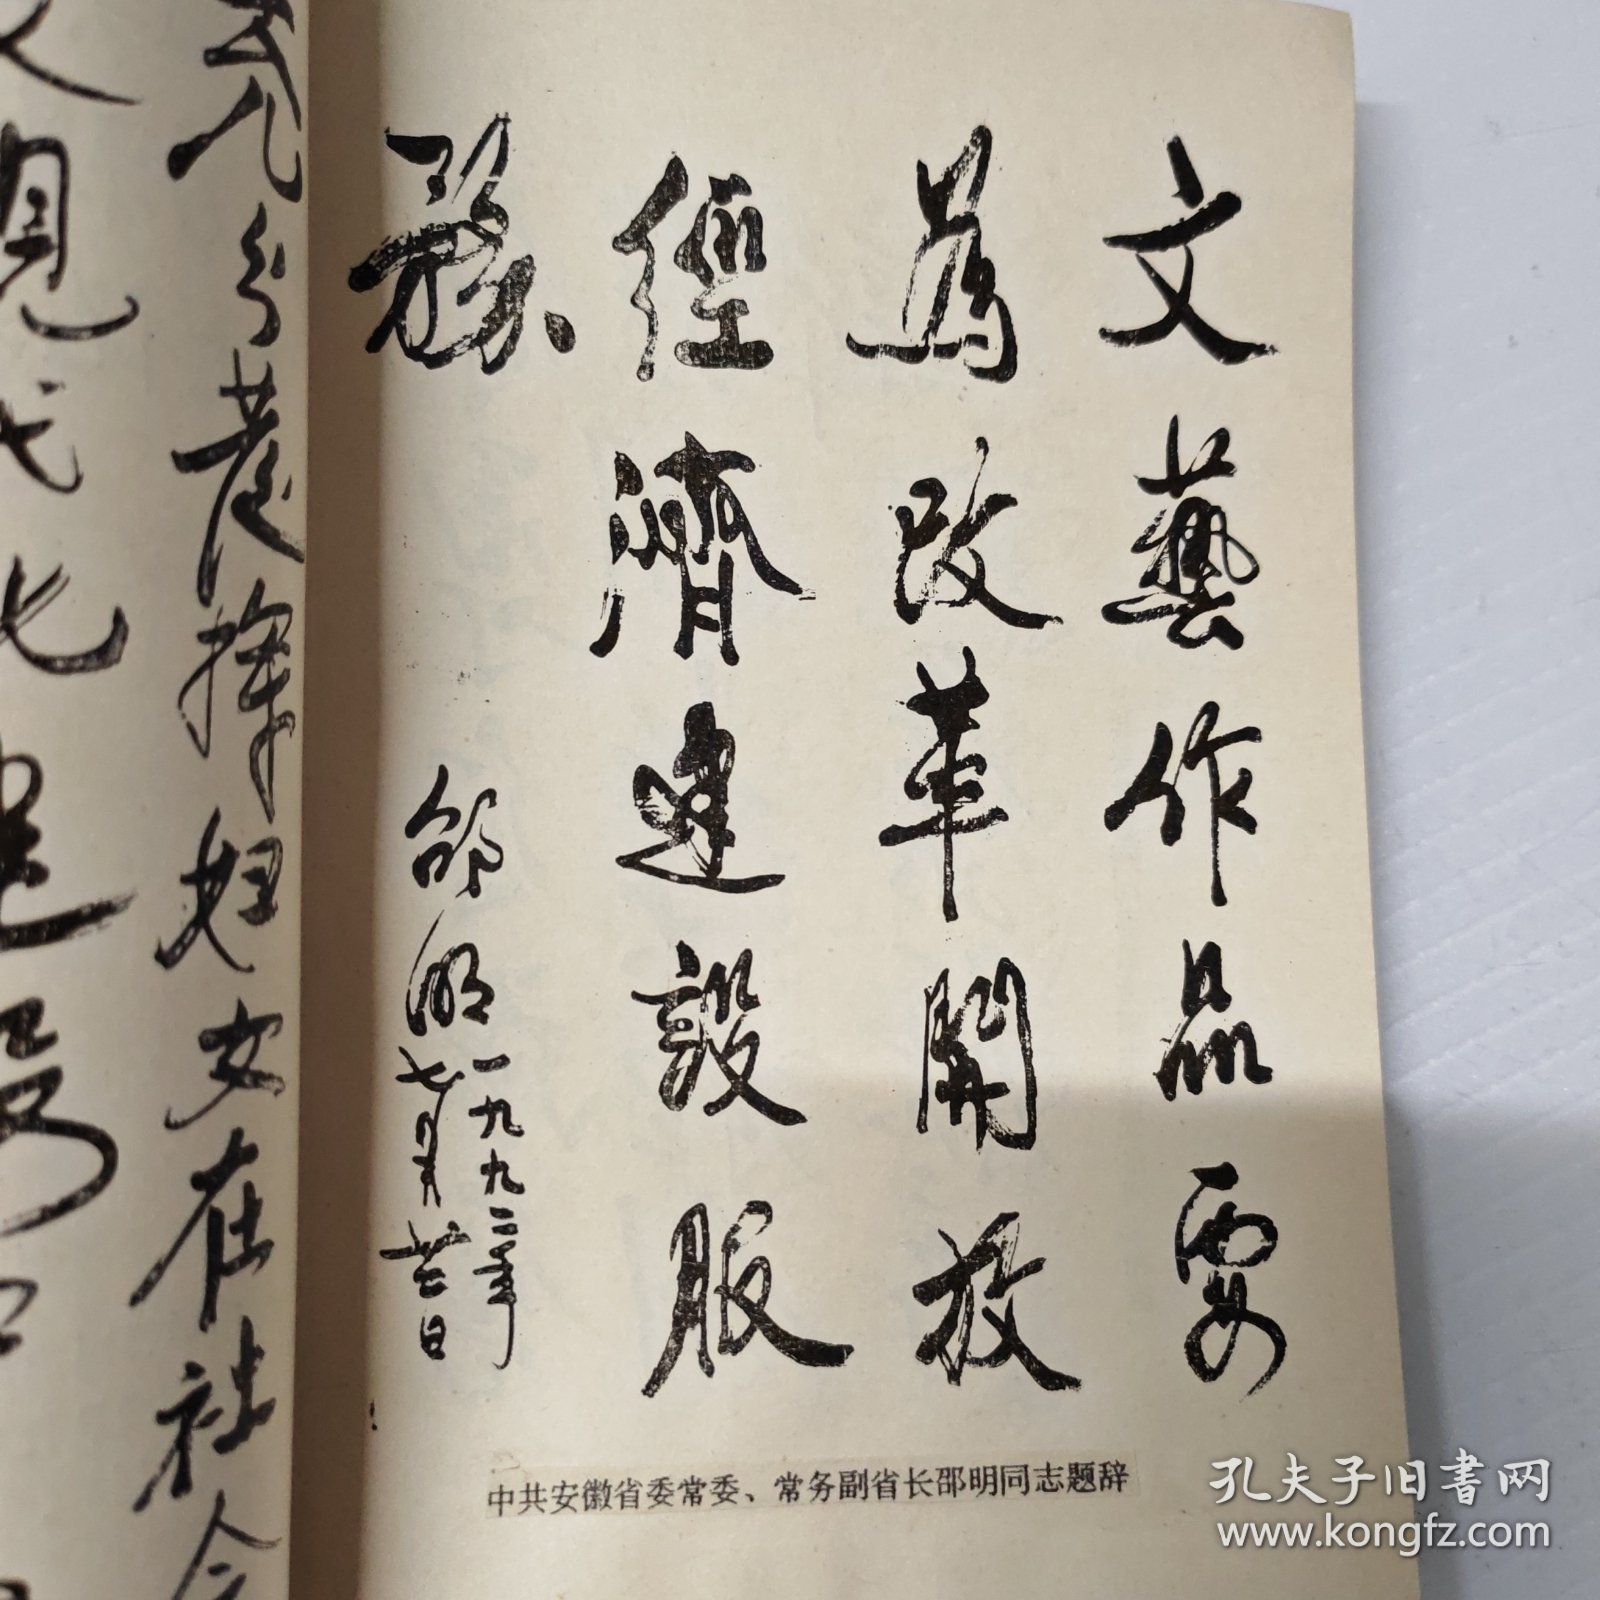 文藝作品要
為改革開放
經濟建設服
務
邵明
一九九二年
七月廿二日
中共安徽省委常委、常务副省长邵明同志题辞
分發揮妇女在社会
現代化建
孔夫子旧书网
www.kongfz.com